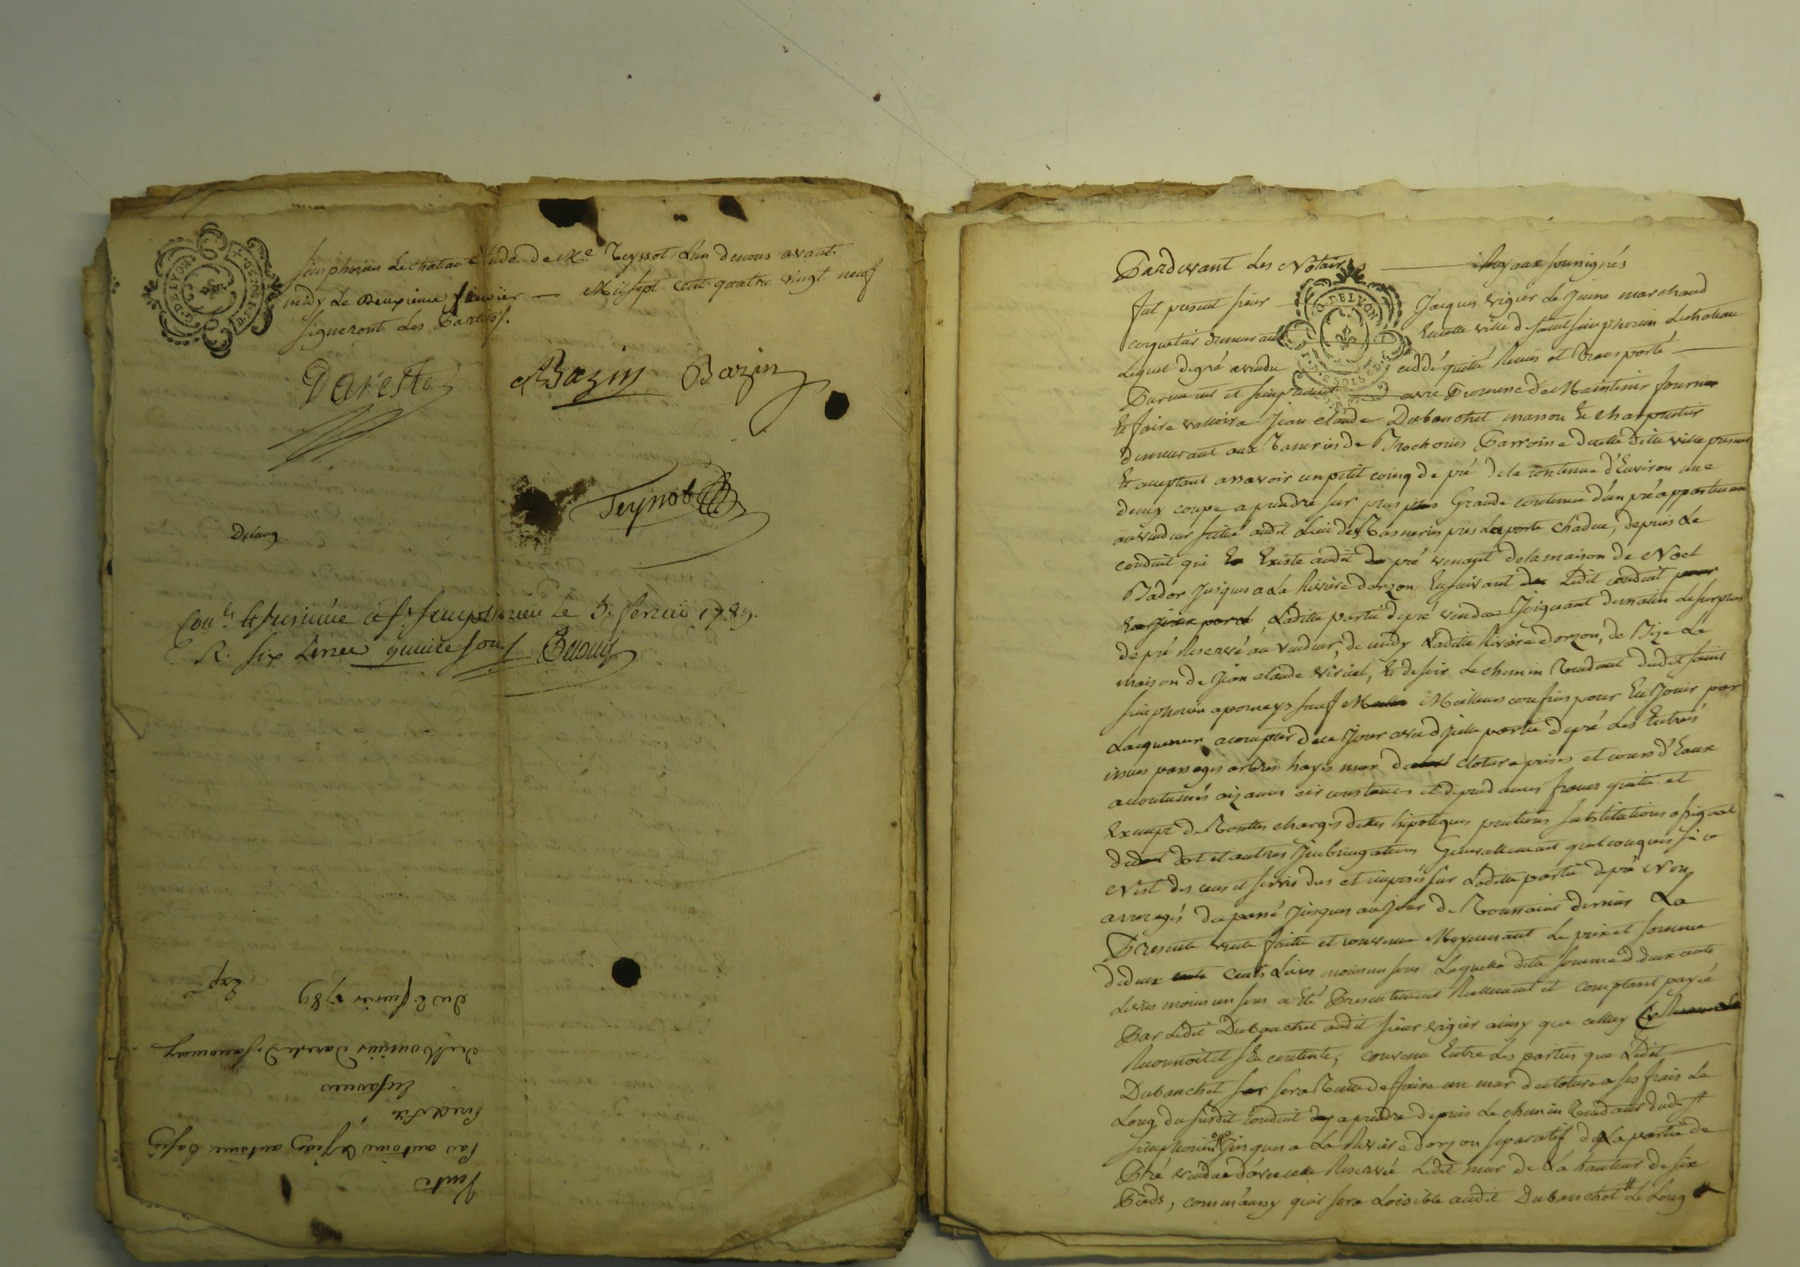 simphorien le chateau étude de Me Teyssot L'un denous avant
midy Le deuxieme fevrier — Mil sept cent quatre vingt neuf
signeront les Parties.
G. DE LYON
Daresté
ABazin Bazin
Teyssot
Conlé & insinué a St simphorien le 3. fevrier 1789.
R. six Livres quinze sous
Vente
Par antoine & jean antoine bazin
Pere & fils
du 2 fevrier 1789
Expé
Pardevant Les Notaires — Royaux soussignés
fut present sieur Jacques vigier Le Jeune marchand
coquetier demeurant En cette ville de saint simphorien Le chateau
Lequel de gré a vendu cédé quité Remis et Transporté —
Purement et simplement avec Promesse de Maintenir fournir
Et faire valloir a Jean claude Dubanchet masson Et charpentier
demeurant aux Tanneries de Parroisse de cette ditte ville present
Et acceptant assavoir un petit coing de pré de la contenue d'Environ une
deux coupe a prendre sur plus Grande contenue d'un pré appartenant
au vendeur situé audit Lieu des Tanneries pres La porte , depuis Le
conduit qui Existe audit pré venant de la maison de Noel
Bador Jusques a La Riviere dorzon En suivant Ledit conduit
Laditte partie de pré vendue Joignant de matin Le surplus
de pré Reservé au vendeur, de midy Laditte Riviere dorzon, de Bize La
maison de Jean claude viricel, Et de soir Le chemin Tendant dudit saint
simphorien a pomeys sauf Meilleurs confins pour En Jouir par
Lacquereur a compter de ce Jour avec de ditte partie de pré Les Entrées
issues passages arbres hayes mur cloture prises et cours d'Eaux
acoutumés aizances circonstances et dependances francs quitte et
Exempt de Touttes charges dettes hipoteques pentions substitutions
dot et autres Generallement quelconques si ce
N'est des cens et servis dus et imposés sur Laditte partie de pré Non
arrerages du passé Jusques au Jour de Toussaint dernier La
Presente vente faitte et convenue Moyennant Le prix et somme
de deux cents Livres moins un sous Laquelle ditte somme de deux cents
Livres moins un sous a Eté Presentement Réellement et comptant payée
Par Ledit Dubanchet audit sieur vigier ainsy que celluy cy
Reconnoit et s'En contente, convenu Entre Les parties que Ledit —
Dubanchet sera Tenu de faire un mur de cloture a ses frais Le
Long du susdit conduit a prendre depuis Le chemin Tendant dudit St
simphorien Jusques a La Riviere dorzon separatif de La partie de
Pré vendue davec celle Reservée Ledit mur de La hauteur de six
Pieds, comm'aussy qu'il sera Loisible audit Dubanchet Le Long